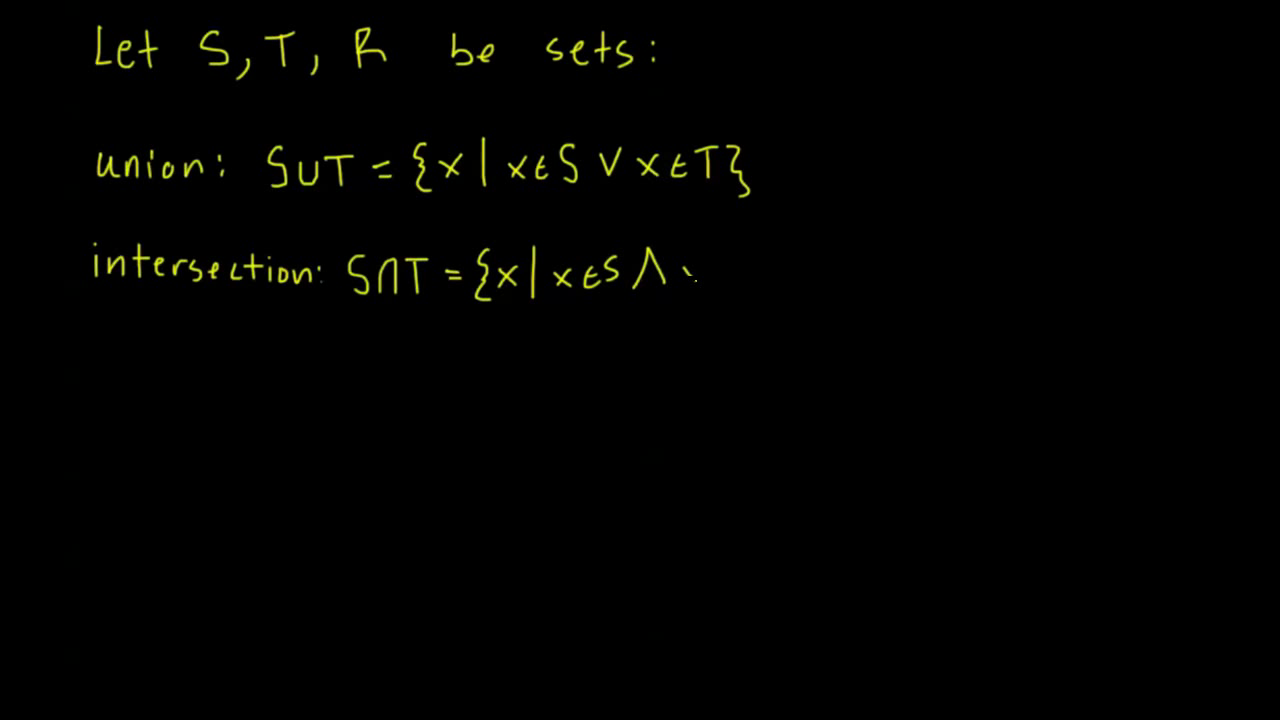 Let S, T, R be sets:
union: S∪T = {x | x∈S ∨ x∈T}
intersection: S∩T = {x | x∈S ∧